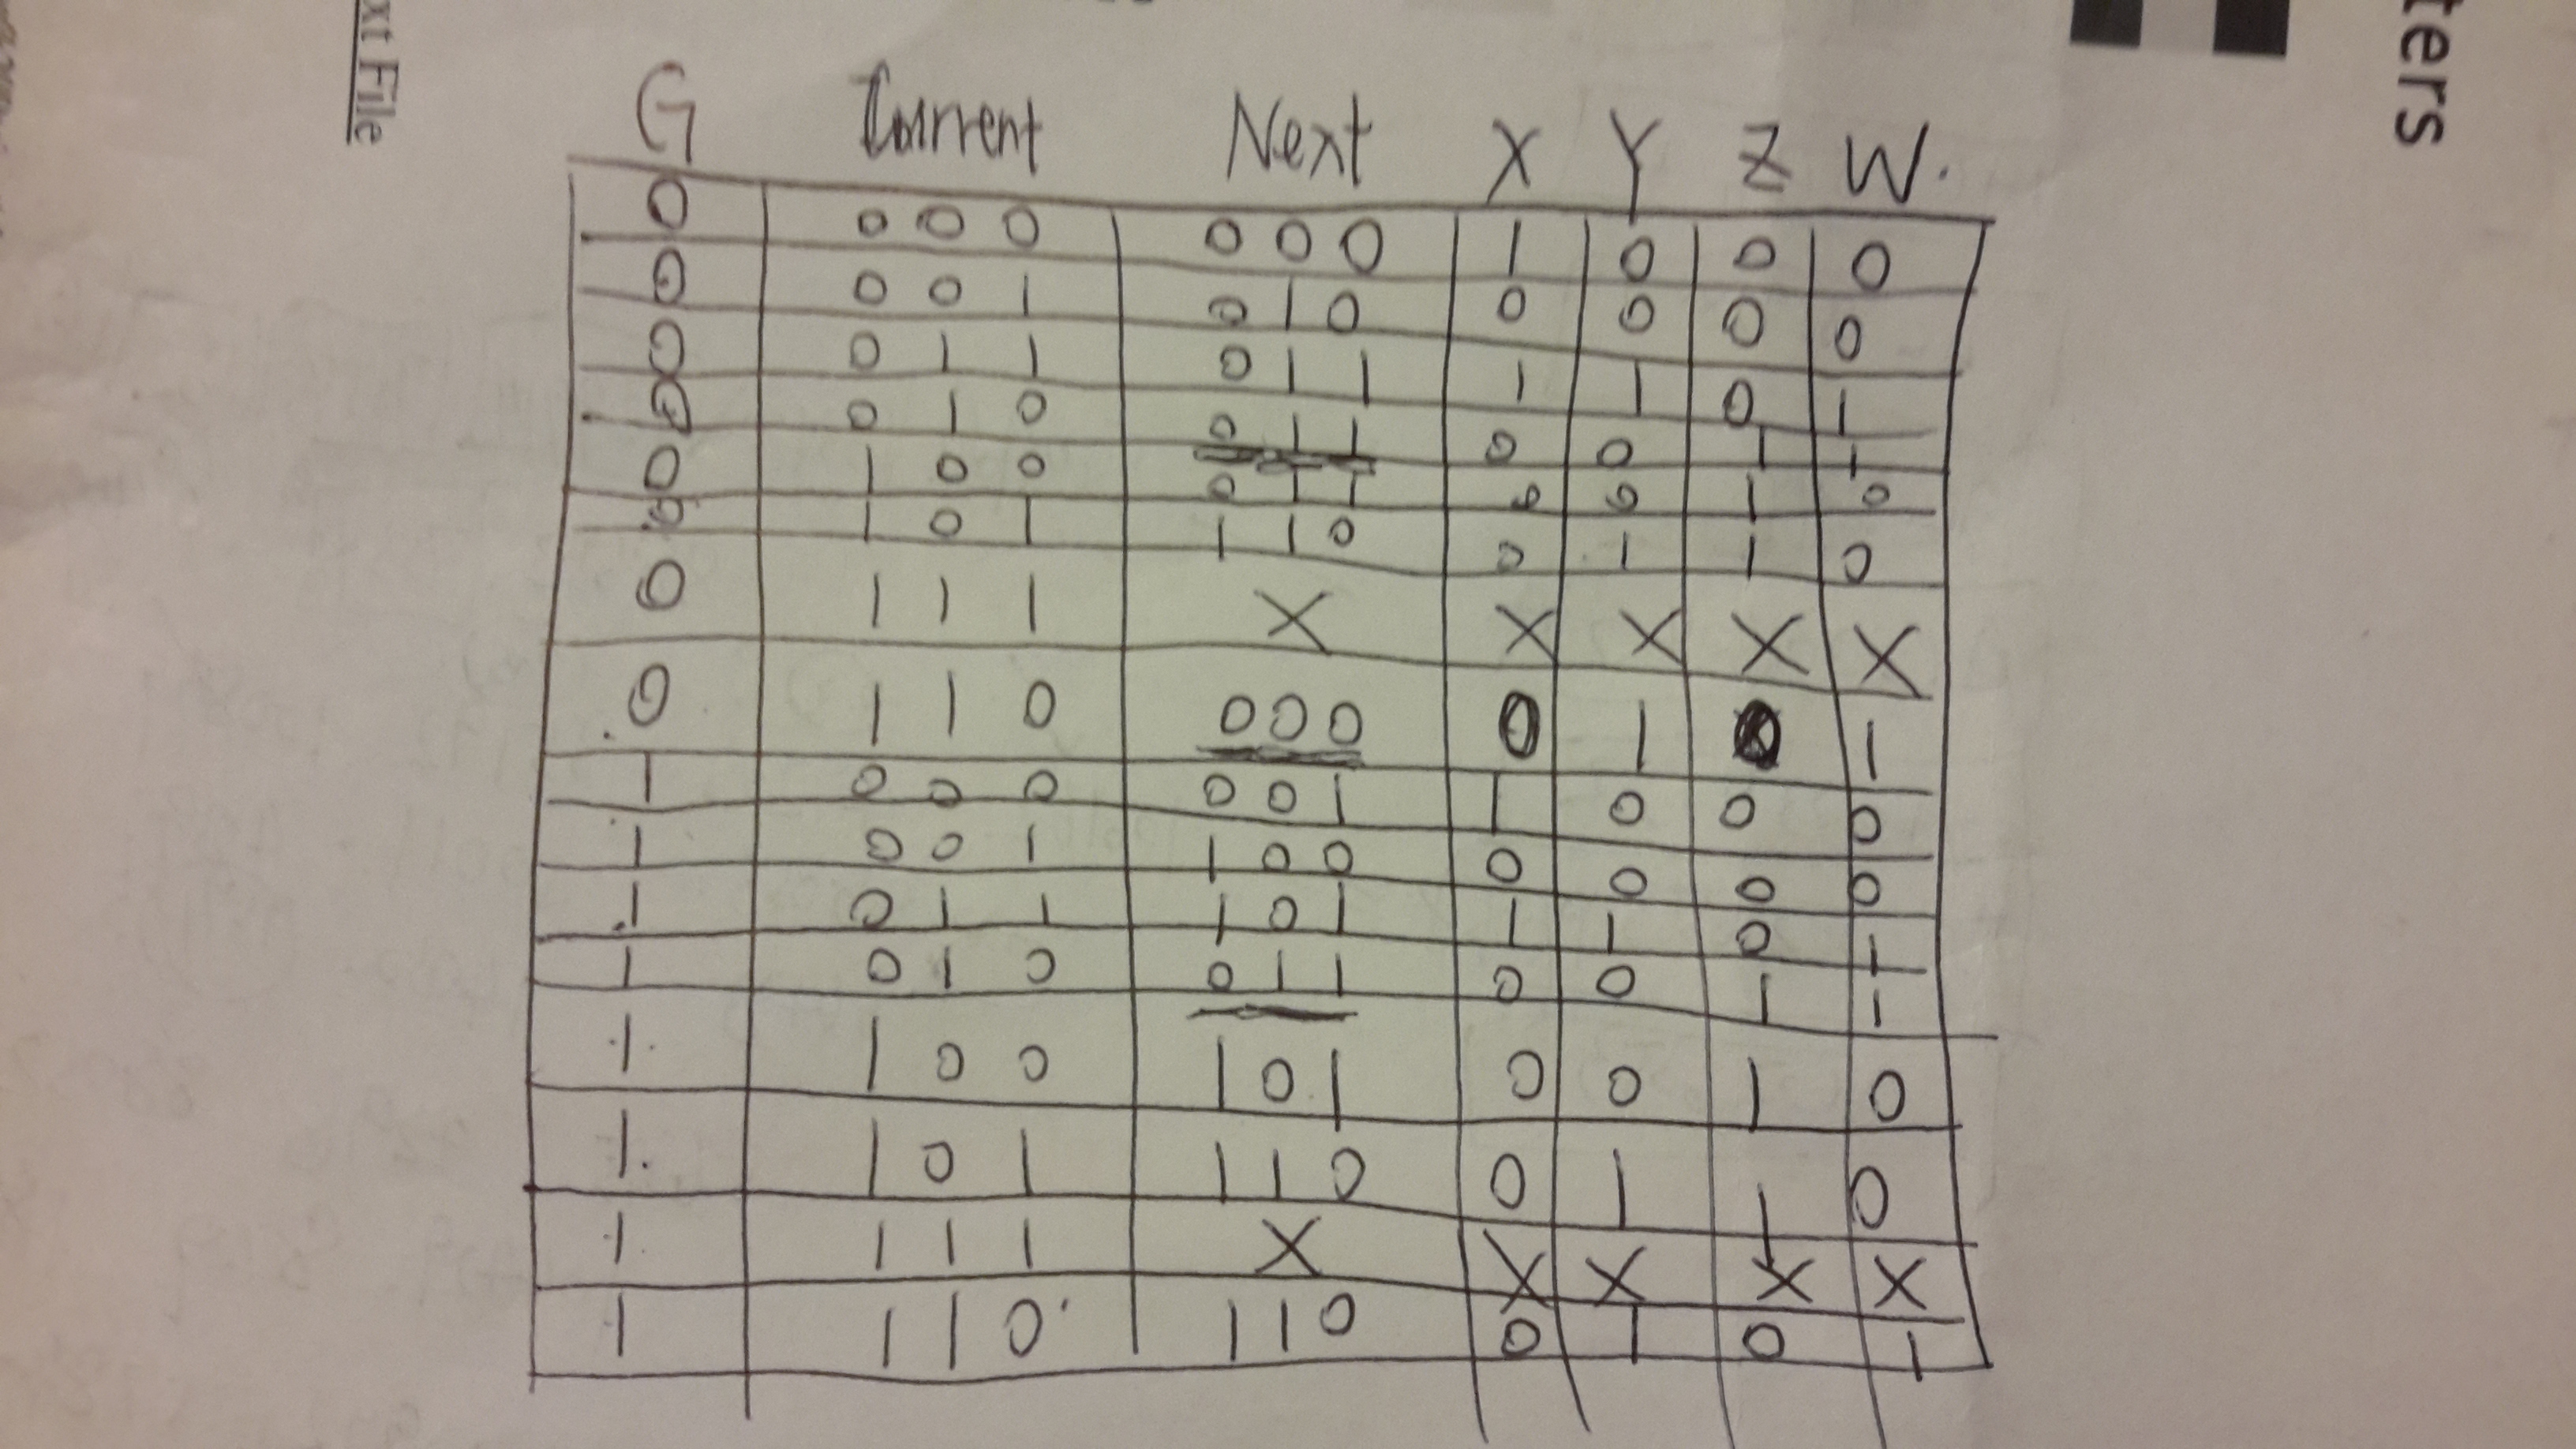 ters
G Current Next X Y Z W.
0 000 000 1 0 0 0
0 001 010 0 0 0 0
0 011 011 1 1 0 1
0 010 011 0 0 1 1
0 100 011 0 0 1 0
0 101 110 0 1 1 0
0 111 X X X X X
0 110 000 0 1 1
1 000 001 1 0 0 0
1 001 100 0 0 0 0
1 011 101 1 1 0 1
1 010 011 0 0 1 1
1 100 101 0 0 1 0
1 101 110 0 1 1 0
1 111 X X X X X
1 110 110 0 1 0 1
xt File